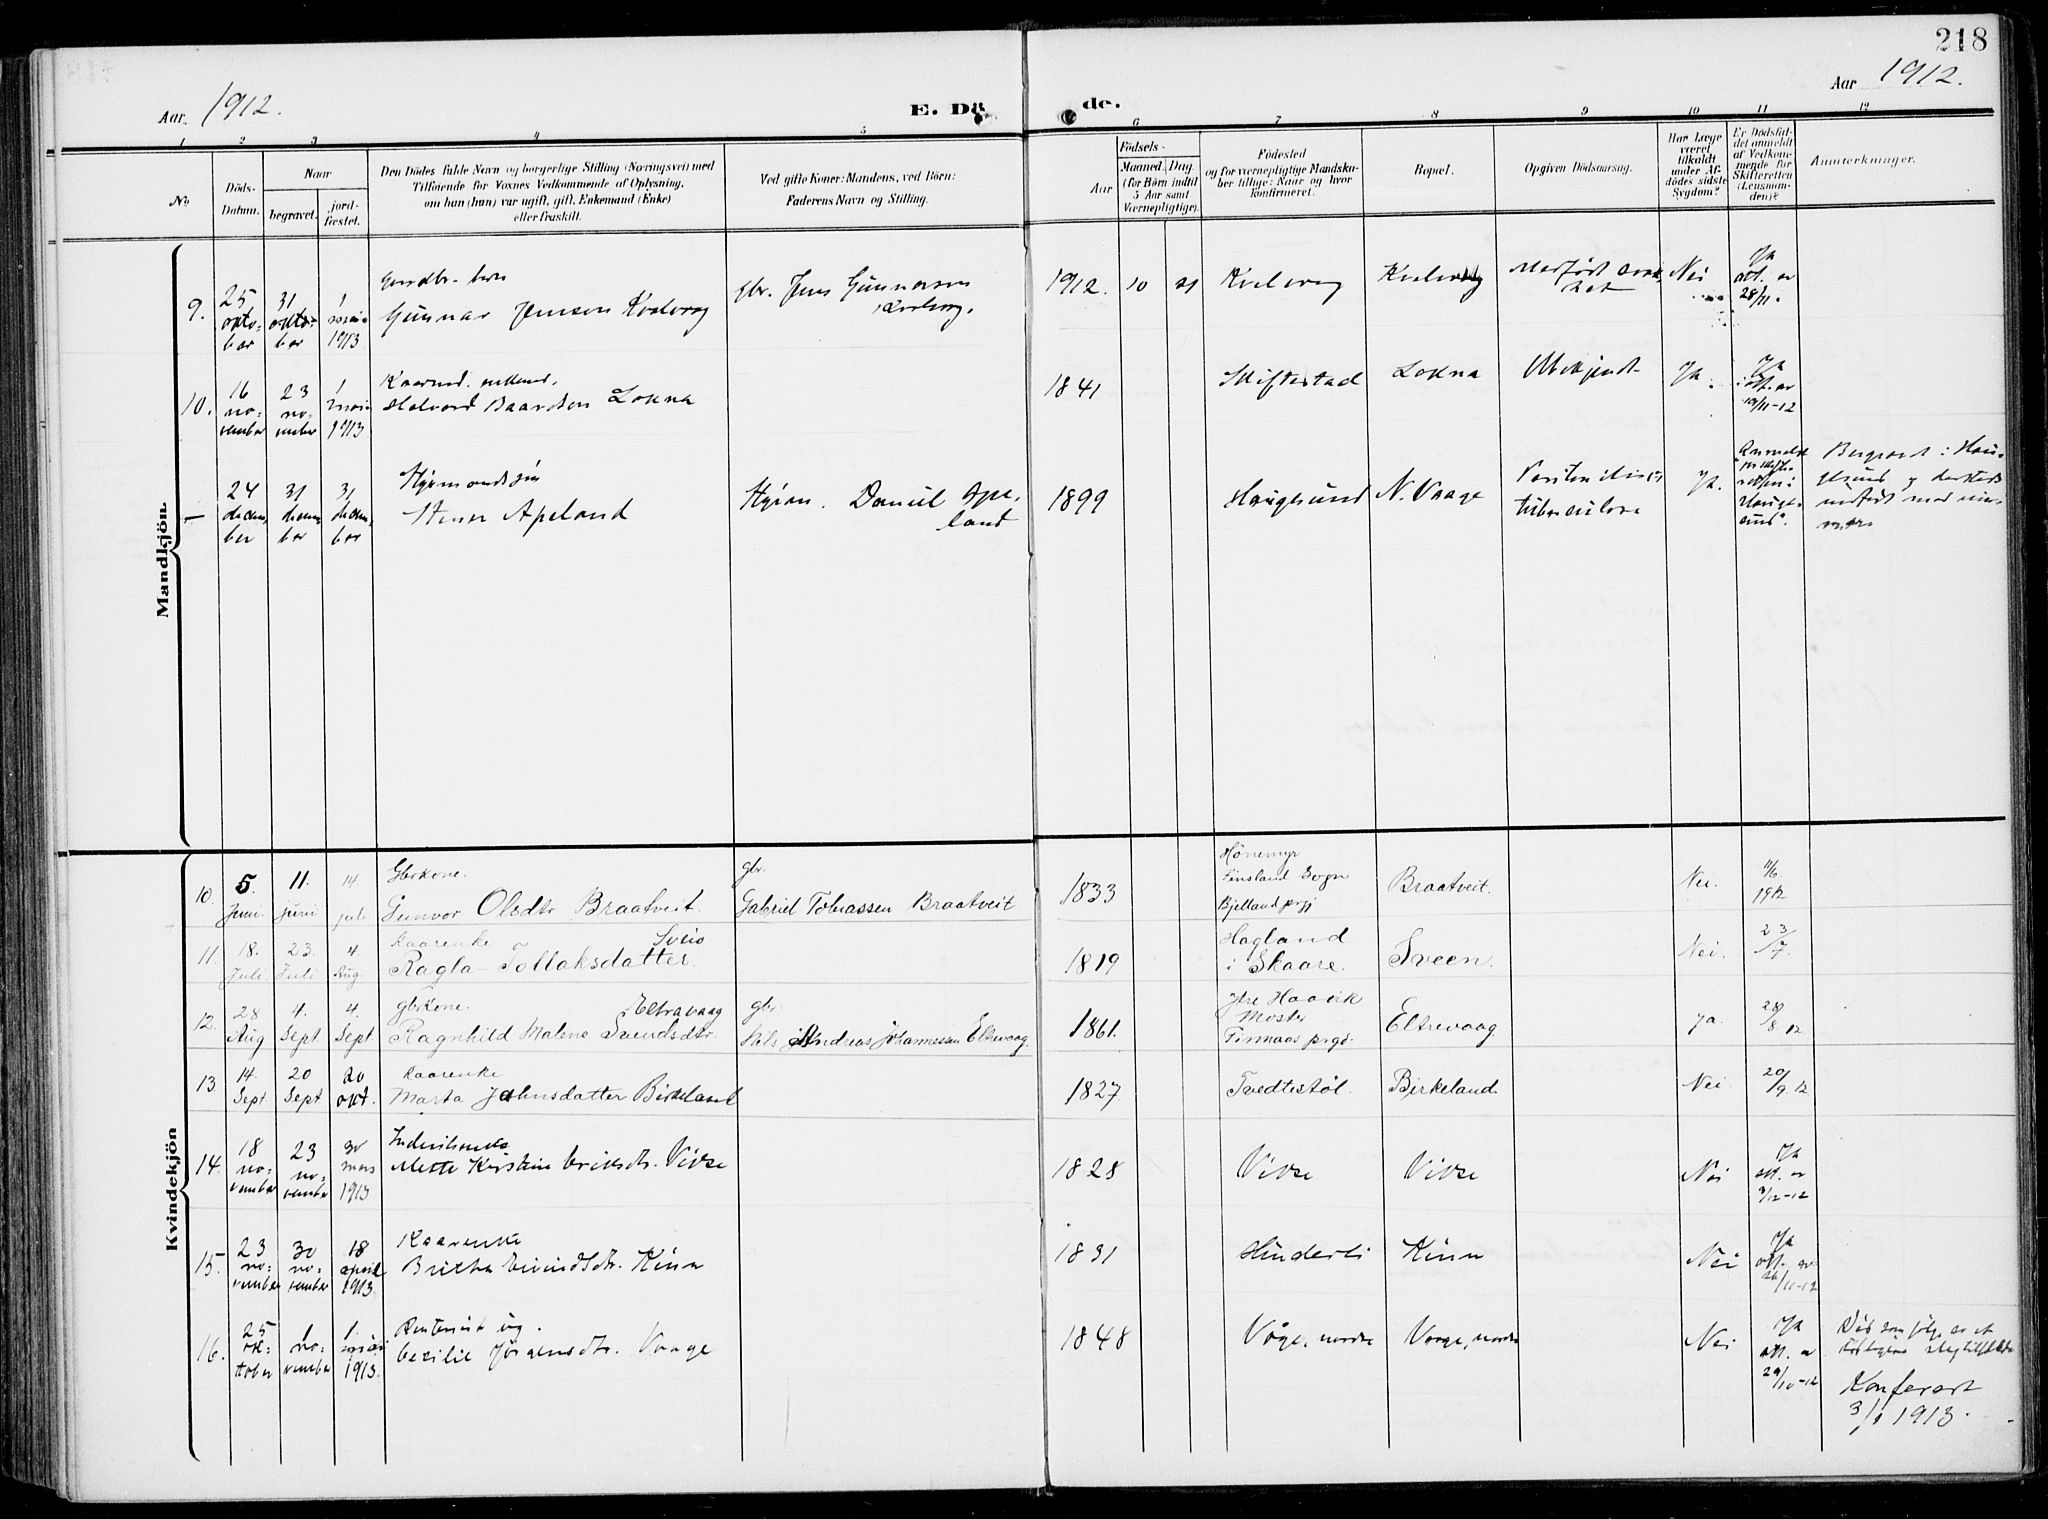 218
Aar 1912.
E. Dø
de.
Aar 1912.
1 2 3 4 5 6 7 8 9 10 11 12
No
Döds-
Datum.
Naar
begravet.
jord-
fæstet.
Den Dödes fulde Navn og borgerlige Stilling (Næringsvei) med
Tilföiende for Voxnes Vedkommende af Oplysning,
om han (hun) var ugift, gift, Enkemand (Enke)
eller fraskilt.
Ved gifte Koner: Mandens, ved Börn:
Faderens Navn og Stilling.
Födsels-
Aar
Maaned. Dag.
(for Börn indtil
5 Aar samt
Værnepligtige).
Födested
og for værnepligtige Mandska-
ber tillige: Naar og hvor
konfirmeret.
Bopæl.
Opgiven Dödsaarsag.
Har Læge
været
tilkaldt
under Af-
dödes sidste
Sygdom?
Er Dödsfal-
det anmeldt
af Vedkom-
mende for
Skifteretten
(Lensman-
den)?
Anmærkninger.
Mandkjön.
9.
25
okto-
ber
31
okto-
ber
1
1913
Gunnar Jensen
gbr. Jens Gunnarsen
1912. 10 21
Medfødt svak-
het
Nei
Ja
att. av
28/11.
10.
16
no-
vember
23
no-
vember
1
1913
Kaarmd. enkemd.
Halvard Baardsen Lokna
1841
Skiftestad
Lokna
Ubekjendt
Ja.
Ja
att. av
19/11-12
24
decem-
ber
31
decem-
ber
31
decem-
ber
Apeland
Daniel Ape-
land
1899
Haugesund
N. Vaage
tuberculose
Ja.
Anmeldt
skifte-
retten i
Hauge-
sund".
Begravet i Hau-
gesund og dersteds
Kvindekjön
10
5.
Juni.
11.
Juni
14.
jul.
Gbrkone.
Gunvor Olsdtr Braatveit.
gbr.
Gabriel Tobiassen Braatveit
1833
Hönemyr
Finsland Sogn
Bjelland prgj
Braatveit.
Nei.
11/6
1912
11.
18.
Juli
23.
Juli
4.
Aug.
Kaarenke Sveio
Ragla Tollaksdatter.
1819
Hagland
i Skaare.
Sveen.
Nei.
23/7
12.
28
Aug
4.
Sept
4.
Sept
gbrkone. Eltravaag
Ragnhild Malene Svendsdtr.
gbr.
Nils Andreas Johannessen Eltrevaag.
1861.
Ytre Haavik
Moster
Finnaas prgd.
Eltrevaag
ja.
28/8 12
13.
14.
Sept
20
Sept
20
okt.
Kaarenke
Marta Johnsdatter Birkeland
1827
Tvedtestöl
Birkeland
Nei
20/9 12
14.
18
no-
vember
23
no-
vember
30
mars
1913
Mette Kirstine Eriksdtr. Vivse
1828
Vivse
Vivse
Nei
Ja
att. av
3/12-12
15.
23
no-
vember
30
no-
vember
18
april
1913
Kaarenke
Britha Eivindsdtr. Kinn
1831
Hinderli
Kinn
Nei
Ja
att. av
26/11-12
16.
25
ok-
tober
1
no-
vember
1.
1913
ug.
Cecilie Jörgensdtr. Vaage
1848
Våge, nordre
Vaage, nordre
Nei
Ja
att. av
29/10-12
Konferert
3/1 1913.